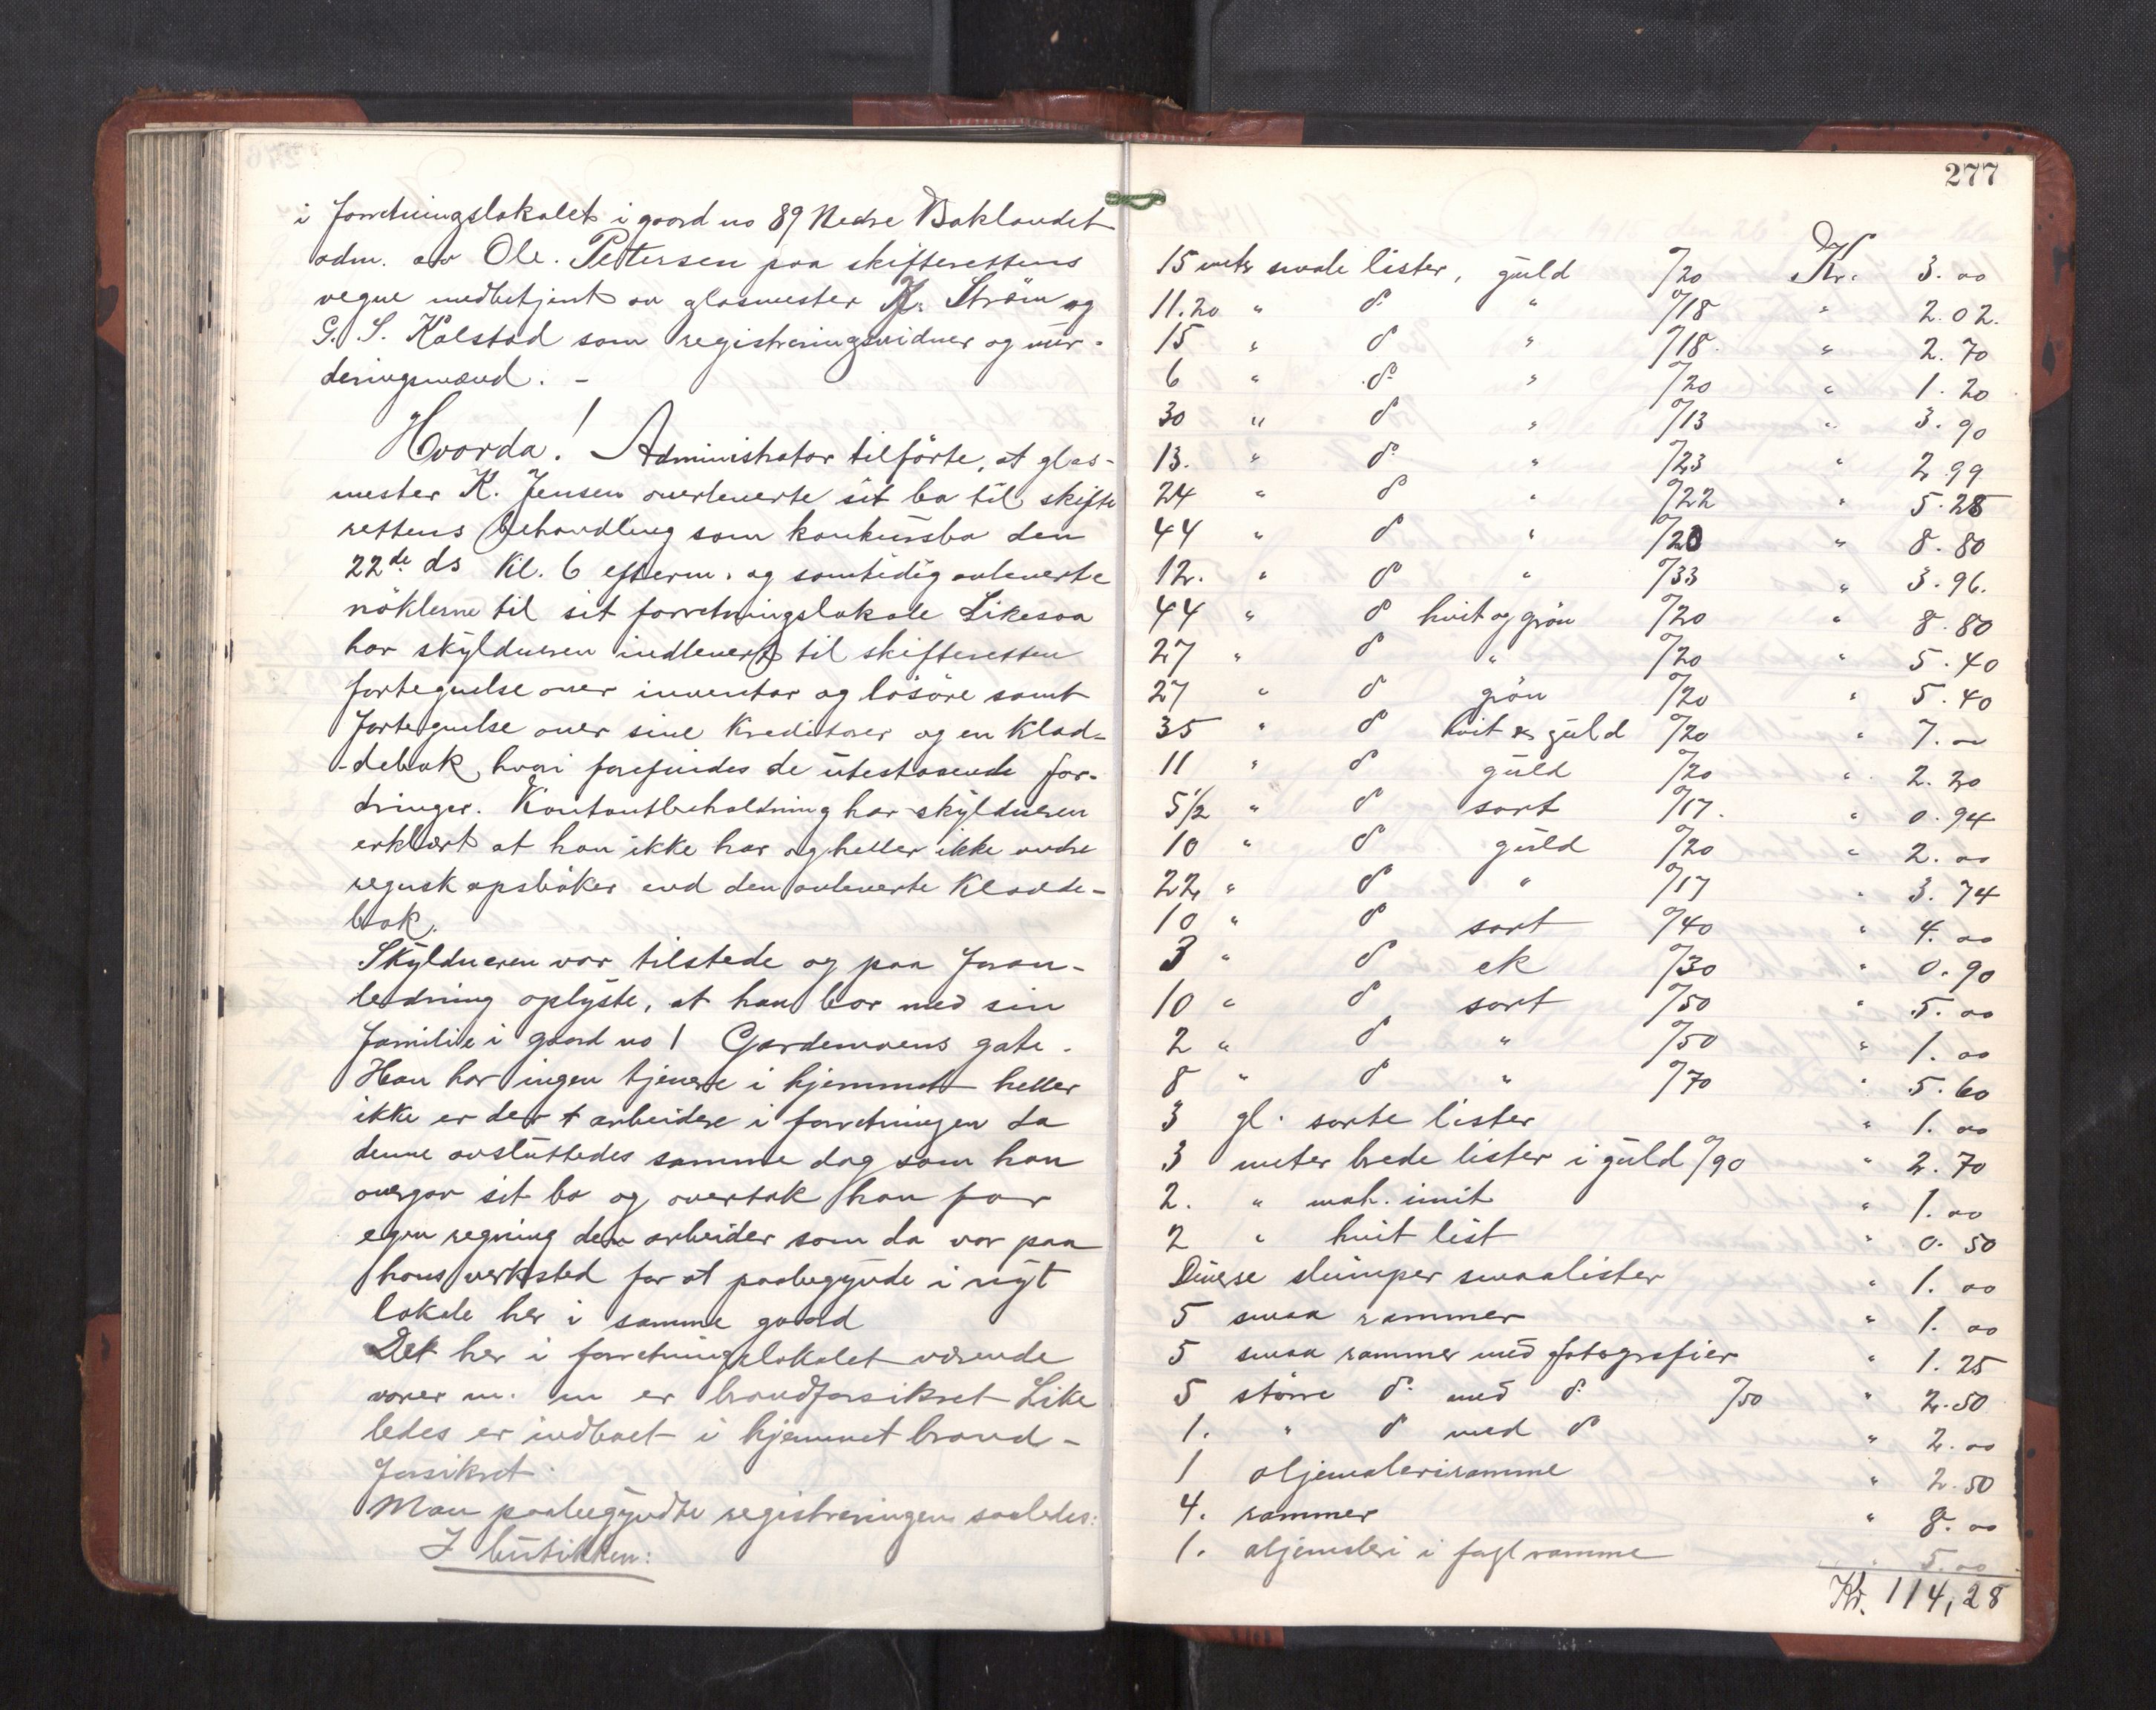 i forretningslokalet i gaard no 89 Nedre Baklandet
adm. av Ole. Pettersen paa skifterettens
vegne medbetjent av glasmester K. Ström og
G. S. Kalstad som registreringsvidner og vur-
deringsmænd. -
Hvorda! Administrator tilförte, at glas-
mester K. Jensen overleverte sit bo til skifte
rettens behandling som konkursbo den
22de ds Kl. 6 efterm. og samtidig avleverte
nöklerne til sit forretningslokale Likesaa
har skyldneren indlevert til skifteretten
fortegnelse over inventar og lösöre samt
fortegnelse over sine Kreditorer og en Klad-
-debok, hvori forefindes de utestaaende for-
dringer. Kontantbeholdning har skyldneren
erklært at han ikke har og heller ikke andre
regnskapsböker end den avleverte Kladde-
bok.
Skyldneren var tilstede og paa foran-
ledning oplyste, at han bor med sin
familie i gaard no 1 Gardemoens gate.
Han har ingen tjenere i hjemmet heller
ikke er der arbeidere i forretningen da
denne avsluttedes samme dag som han
overgav sit bo og overtok han for
egen regning den arbeider som da var paa
hans verksted for at paabegynde i nyt
lokale her i samme gaard
Det her i forretningslokalet værende
varer m. m er brandforsikret Like
ledes er indboet i hjemmet brand-
forsikret.
Man paabegyndte registreringen saaledes:
I butikken:
277
15 meter smale lister, guld °/20 Kr. 3.00
11.20 " do " °/18 " 2.02.
15 " do " °/18. " 2.70
6 " do " °/20 " 1.20
30 " do " °/13 " 3.90
13. " do " °/23 " 2.99
24 " do " °/22 " 5.28
44 " do " °/20 " 8.80
12. " do " °/33 " 3.96.
44 " do hvit og grön °/20 " 8.80
27 " do " °/20 " 5.40
27 " do grön °/20 " 5.40
35 " do hvit & guld °/20 " 7.00
11 " do guld °/20 " 2.20
5 1/2 " do sort °/17. " 0.94
10 " do guld °/20 " 2.00
22 " do " °/17 " 3.74
10 " do sort °/40 " 4.00
3 " do ek °/30 " 0.90
10 " do sort °/50 " 5.00
2 " do " °/50 " 1.00
8 " do " °/70 " 5.60
3 gl. sorte lister " 1.00
3 meter brede lister i guld °/90 " 2.70
2. " mah. imit " 1.00
2 " hvit list " 0.50
Diverse slumper smaalister " 1.00
5 smaa rammer " 1.00
5 smaa rammer med fotografier " 1.25
5 större do med do °/50 " 2.50
1. " do med do " 2.00
1 oljemaleriramme " 2.50
4. rammer " 8.00
1. oljemaleri i ramme " 5.00
Kr. 114,28